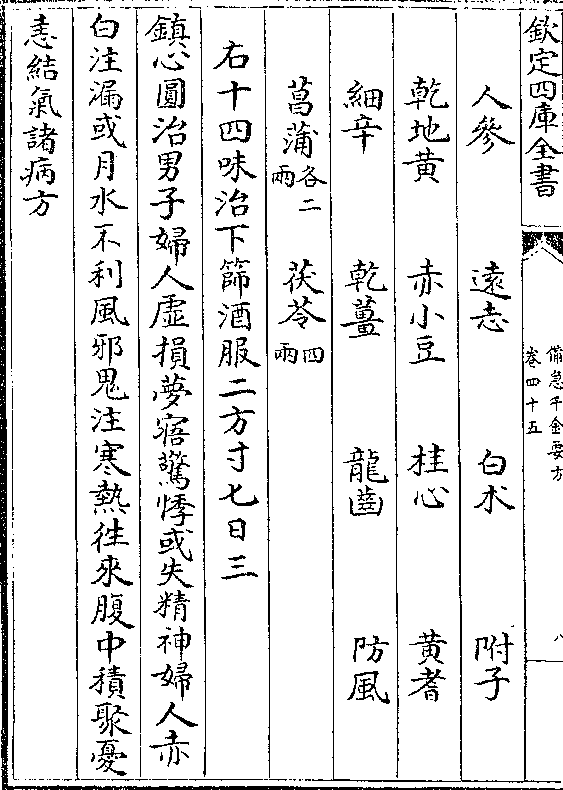 欽定四庫全書
備急千金要方
卷四十五
八
人參 遠志 白朮 附子
乾地黄 赤小豆 桂心 黄耆
細辛 乾薑 龍齒 防風
菖蒲各二兩 茯苓四兩
右十四味治下篩酒服二方寸七日三
鎮心圓治男子婦人虛損夢寤驚悸或失精神婦人赤
白注漏或月水不利風邪鬼注寒熱徃來腹中積聚憂
恚結氣諸病方